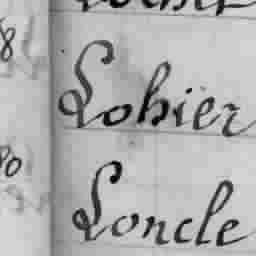 8 Lohier
80 Loncle